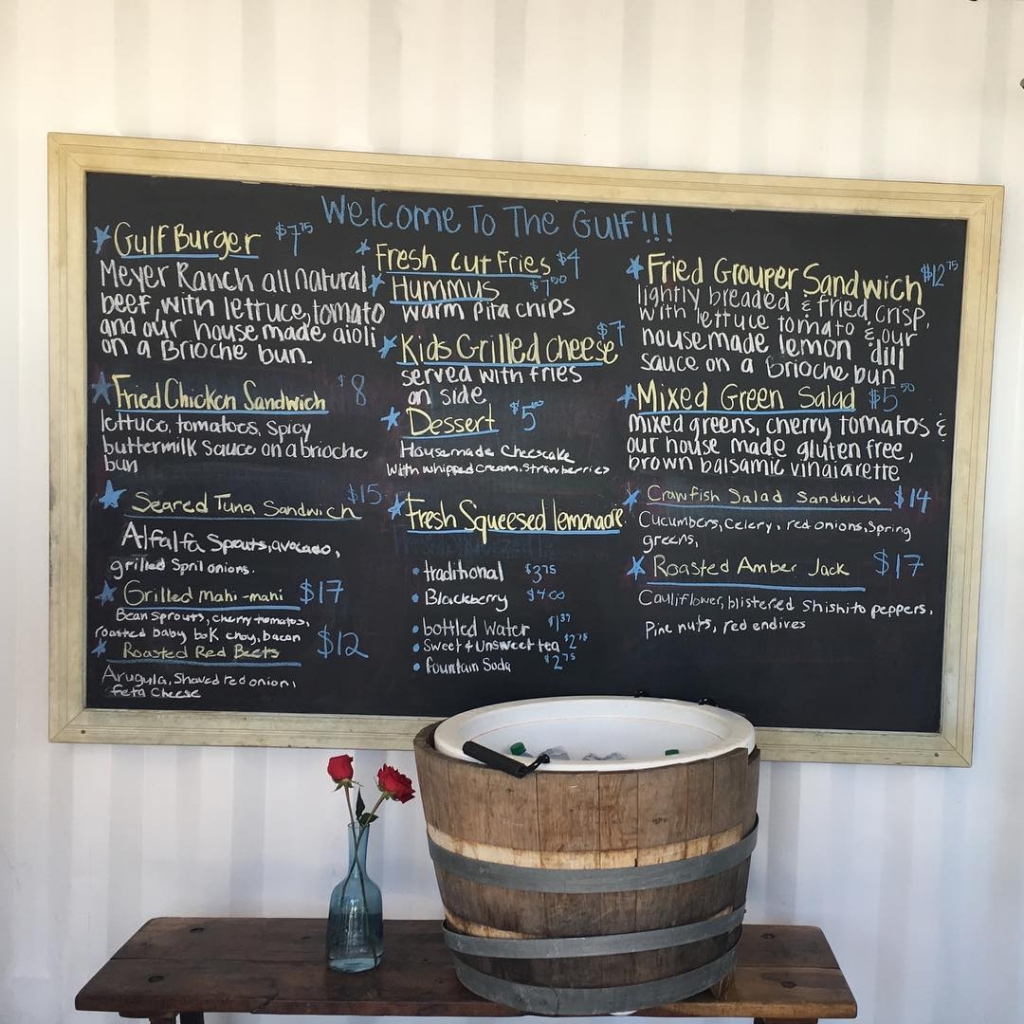 Welcome To The Gulf!!!
Gulf Burger $7.75
Meyer Ranch all natural
beef, with lettuce, tomato
and our house made aioli
on a Brioche bun.
Fried Chicken Sandwich $8
lettuce, tomatoes, spicy
buttermilk sauce on a brioche
bun
Seared Tuna Sandwich $15
Alfalfa Sprouts, avocado,
grilled Spril onions.
Grilled mahi-mahi $17
Bean sprouts, cherry tomatoes,
roasted baby bok choy, bacon
Roasted Red Beets $12
Arugula, Shaved red onion,
feta Cheese
Fresh cut Fries $4
Hummus $7.50
warm pita chips
Kids Grilled cheese $7
served with fries
on side
Dessert $5
Housemade Chescake
with whipped cream, strawberries
Fresh Squeesed lemonade
• traditional $3.75
• Blackberry $4.00
• bottled Water
• Sweet & Unsweet tea $2.75
• fountain Soda $2.75
Fried Grouper Sandwich $12.75
lightly breaded & fried crisp,
with lettuce tomato & our
housemade lemon dill
sauce on a brioche bun
Mixed Green Salad $5.50
mixed greens, cherry tomatos &
our house made gluten free,
brown balsamic vinaiarette
Crawfish Salad Sandwich $14
Cucumbers, Celery, red onions, Spring
greens,
Roasted Amber Jack $17
Cauliflower, blistered Shishito peppers,
Pine nuts, red endives